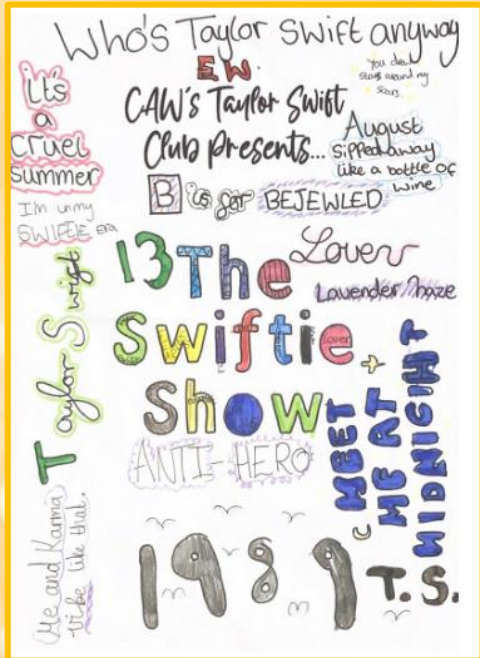 Who's Taylor Swift anyway
EW.
You drew
stars around my
scars.
It's
a
cruel
summer
CAW's Taylor Swift
Club Presents...
August
sipped away
like a bottle of
wine
I'm in my
SWIFTIE era
B is for BEJEWLED
13 The
Swiftie
Show
Lover
Lavender haze
Taylor Swift
ANTI-HERO
MEET
ME AT
MIDNIGHT
Me and Karma
vibe like that.
1989
T.S.